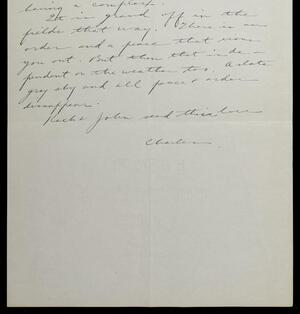 being a complex.
It is grand off in the
fields that way. There is an
order and a peace that irons
you out. But then that is de-
pendent on the weather too. A slate
grey sky and all peace & order
disappear.
John send their love
Charles